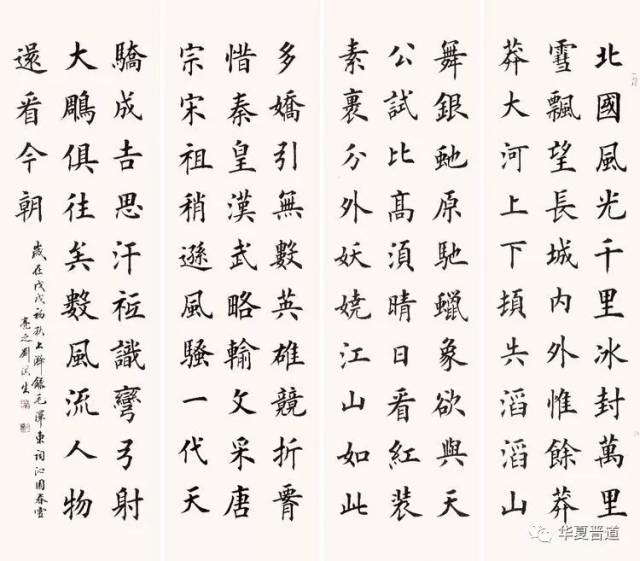 北國風光千里冰封萬里
雪飄望長城内外惟餘莽
莽大河上下頓失滔滔山
舞銀虵原馳蠟象欲與天
公試比高須晴日看紅裝
素裹分外妖嬈江山如此
多嬌引無數英雄競折腰
惜秦皇漢武略輸文采唐
宗宋祖稍遜風騷一代天
驕成吉思汗祗識彎弓射
大鵰俱往矣數風流人物
還看今朝
歲在戊戌初秋上澣錄毛澤東词沁園春雪
亮之劉洪生
华夏晋道